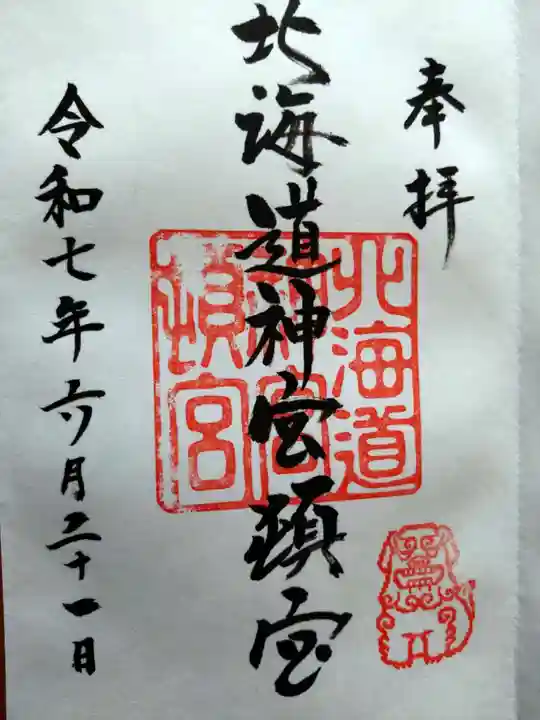 奉拝
北海道神宮頓宮
北海道
神宮
頓宮
令和七年六月二十一日